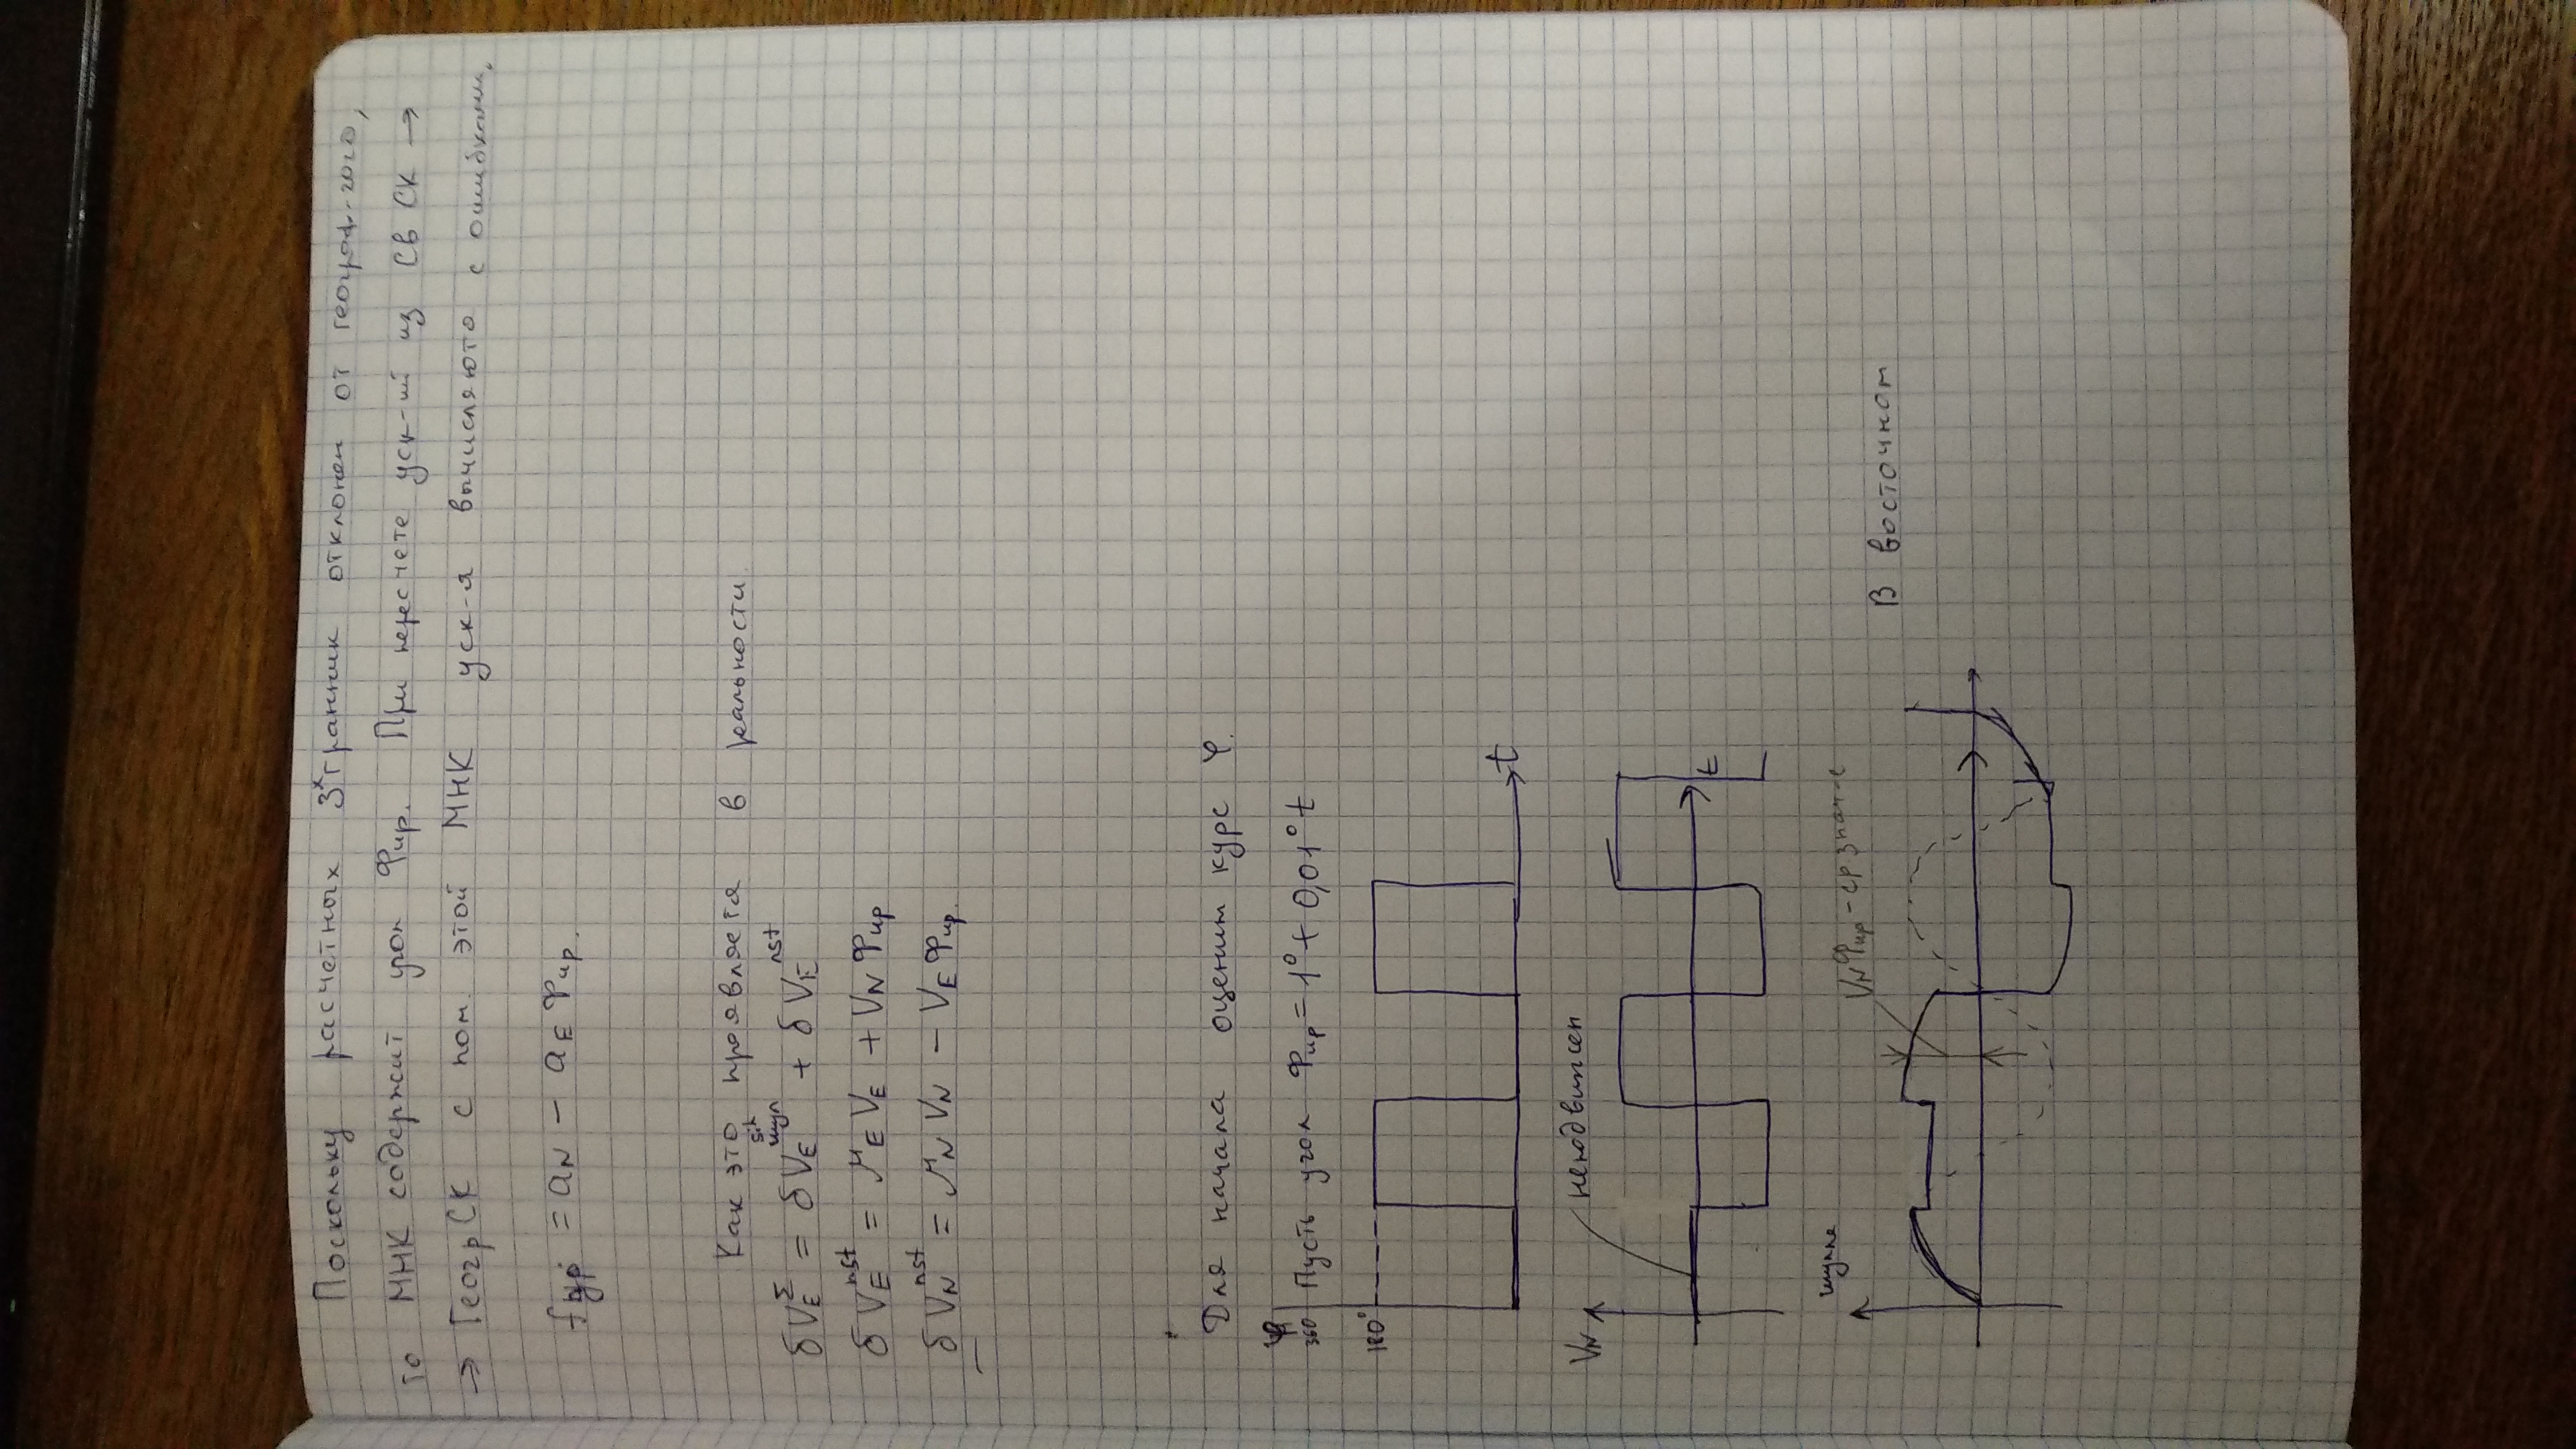 Поскольку расчетных 3х гранник отклонен от географ-ого,
то МНК содержит угол Фир. При пересчете уск-ий из Св СК →
→ Геогр СК с пом. этой МНК уск-я вычисляютс с ошибками.
= aN − aE Фир.
Как это проявляется в реальности.
δVE^Σ = δVE^шул + δVE^nst
δVE^nst = μE VE + VN Фир
δVN^nst = μN VN − VE Фир
Для начала оценим курс φ.
Пусть угол Фир = 1° + 0,01° t
360
180°
t
VN
неподвижен
t
шулле
VN Фир
В восточном